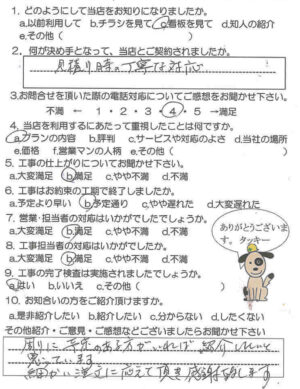 1. どのようにして当店をお知りになりましたか。
a.以前利用して b.チラシを見て c.看板を見て d.知人の紹介
e.その他（　　　　　　　　　　）
2. 何が決め手となって、当店とご契約されましたか。
見積り時の丁寧な対応
3.お問合せを頂いた際の電話対応についてご感想をお聞かせ下さい。
不満 ← 1・2・3・4・5 →満足
4. 当店を利用するにあたって重視したことは何ですか。
a.プランの内容 b.評判 c.サービスや対応のよさ d.当社の場所
e.価格 f.営業マンの人柄 e.その他（　　　　　　　）
5. 工事の仕上がりについてお聞かせ下さい。
a.大変満足 b.満足 c.やや不満 d.不満
6. 工事はお約束の工期で終了しましたか。
a.予定より早い b.予定通り c.やや遅れた d.大変遅れた
7. 営業・担当者の対応はいかがでしたでしょうか。
a.大変満足 b.満足 c.やや不満 d.不満
8. 工事担当者の対応はいかがでしたか。
a.大変満足 b.満足 c.やや不満 d.不満
ありがとうございま
す。タッキー
9. 工事の完了検査は実施されましたでしょうか。
a.はい b.いいえ c.その他（　　　　　　）
10. お知り合いの方をご紹介頂けますか。
a.是非紹介したい b.紹介したい c.分からない d.したくない
その他紹介・ご意見・ご感想などございましたらお聞かせ下さい
周りに予定のある方がいれば紹介したいと
思っています。
細かい注文に応えて頂き感謝致します